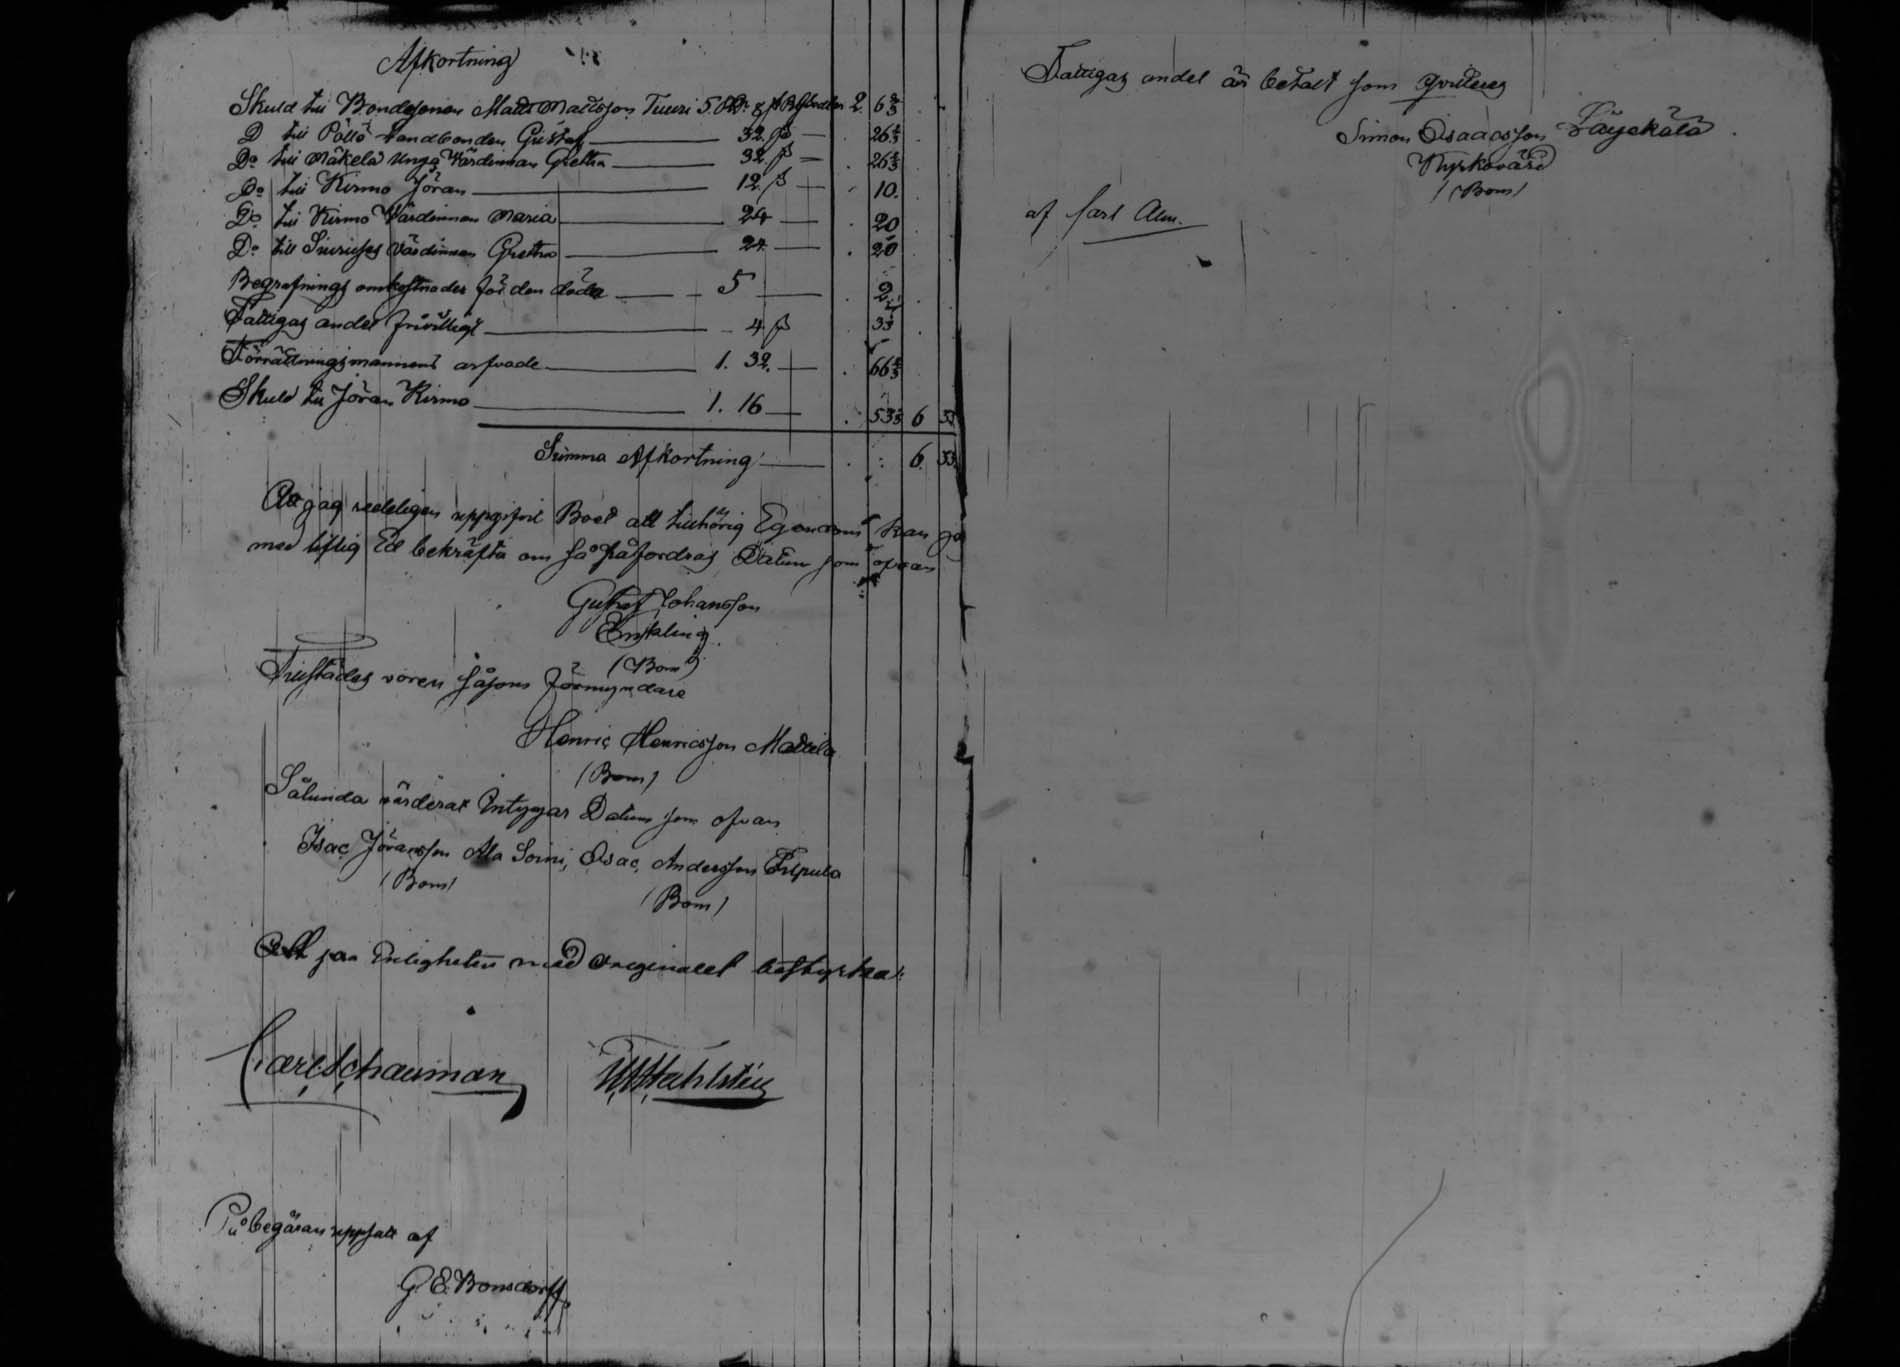 Afkortning
Skuld till Bondesonen Matts Mattsson Tuuri 5. 2. 6 2/3
D till Pöllö Landbonden Gustaf 32 β 26 2/3
Do till Mäkelä Unga Värdinnan Gretha 32 β 26 2/3
Do till Kirmo Jöran 12 β 10.
Do till Kirmo Värdinnan Maria 24 20
Do till Värdinnan Gretha 24 20
Begrafnings omkostnader för den döda 5 2
Fattigas andel frivilligt 4 β 3 1/3
Förrättningsmannens arfvode 1. 32. 66 2/3
Skuld till Jöran Kirmo 1. 16 53 1/3 6 33
Summa Afkortning 6 33
Att jag redeligen uppgifvit Boet all tillhörig Egendom kan jag
med liflig Ed bekräfta om så påfordras Datum som ofvan
Gustaf Johansson
Enstaling
(Bom)
Tillstädes voren såsom förmyndare
Henric Henricsson Mattila
(Bom)
Sålunda värderat Intygar Datum som ofvan
Isac Jöransson Ala Soini, Isac Andersson Filpula
(Bom) (Bom)
med originalet bestyrka:
Carl Schauman
På begäran uppsatt af
G. E. Bonsdorff
Fattigas andel är betalt som qvitteras
Simon Isaacsson
Kyrkovärd
(Bom)
af Carl Alm.